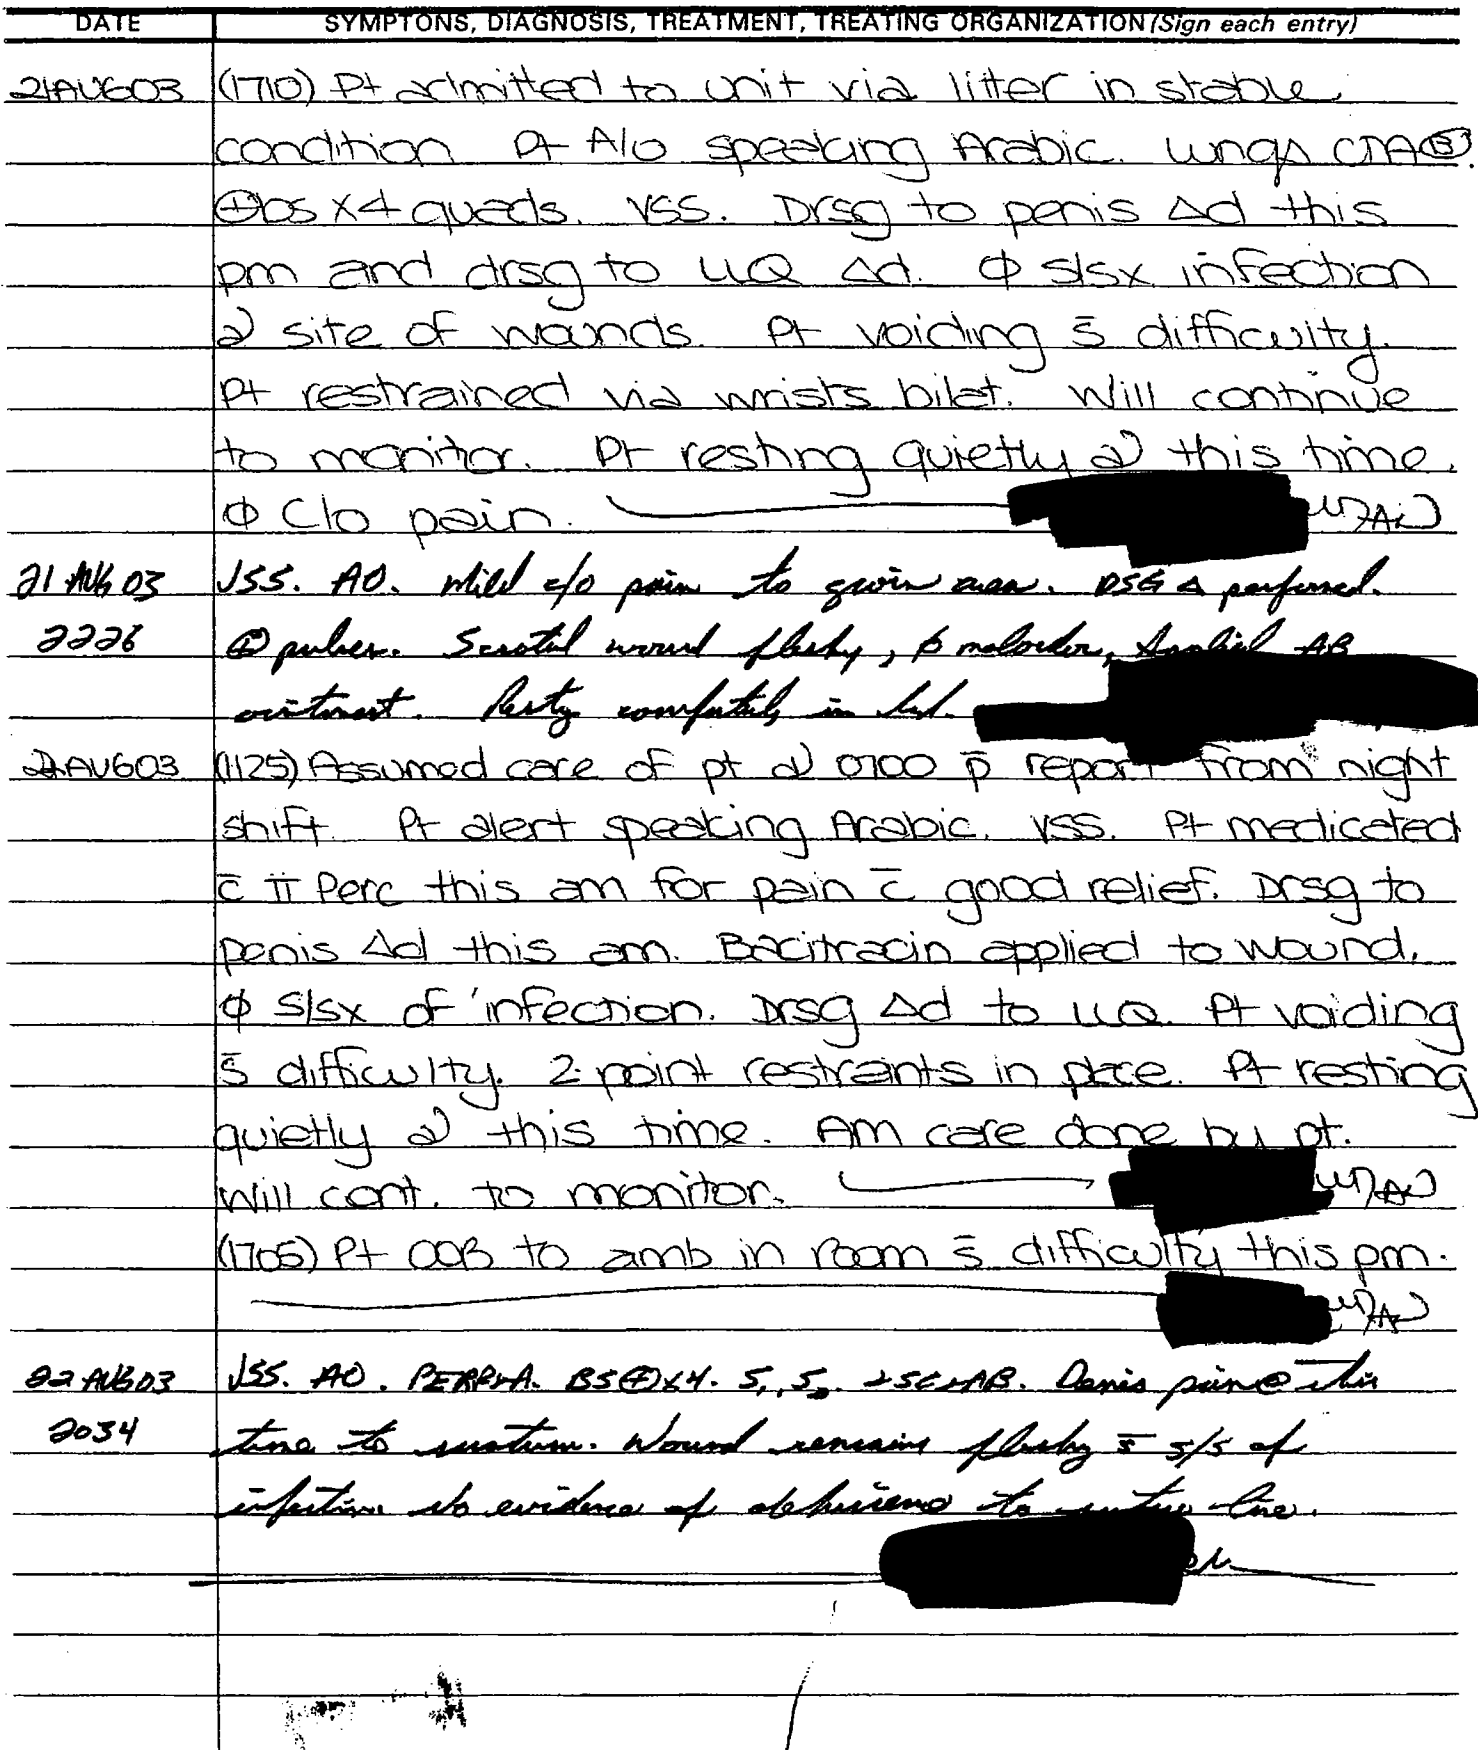 DATE SYMPTONS, DIAGNOSIS, TREATMENT, TREATING ORGANIZATION (Sign each entry)
21AUG03 (1710) Pt admitted to unit via litter in stable
condition Pt A/O speaking Arabic. Lungs CTA Ⓑ.
⊕bs x4 quads. VSS. Drsg to penis Δd this
pm and drsg to LLQ Δd. Φ s/sx infection
@ site of wounds. Pt voiding s̄ difficulty.
Pt restrained via wrists bilat. Will continue
to monitor. Pt resting quietly @ this time.
Φ C/o pain.
21 AUG 03 VSS. AO. Mild c/o pain to groin area. DSG Δ performed.
2226 ⊕ pulses. Scrotal wound fleshy, Φ malodor, Applied AB
ointment. Resting comfortably in bed.
22AUG03 (1125) Assumed care of pt @ 0700 p̄ report from night
shift. Pt alert speaking Arabic. VSS. Pt medicated
c̄ II Perc this am for pain c̄ good relief. Drsg to
penis Δd this am. Bacitracin applied to wound.
Φ S/sx of infection. Drsg Δd to LLQ. Pt voiding
s̄ difficulty. 2-point restraints in place. Pt resting
quietly @ this time. AM care done by pt.
Will cont. to monitor.
(1705) Pt OOB to amb in room s̄ difficulty this pm.
22 AUG 03 VSS. AO. PERRLA. BS⊕x4. S₁, S₂. Denies pain @ this
2034 time to scrotum. Wound remains fleshy s̄ s/s of
infection. No evidence of dehiscence to suture line.